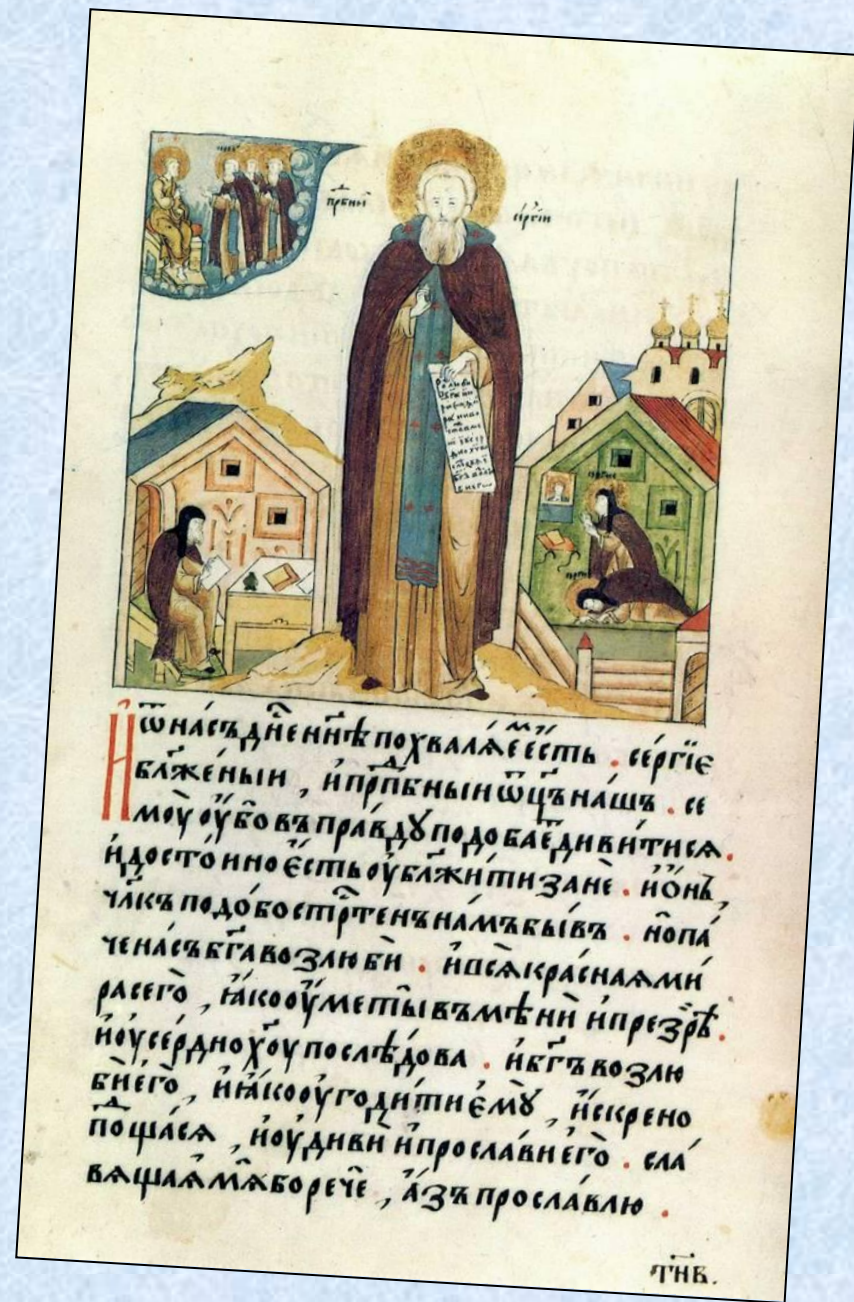 прпбныи
сергіи
И҆ ѿна́съ дн҃е нн҃ѣ похвалѧ́е е҆́сть . се́ргїе
бл҃же́ныи , и҆прпⷣбныи ѿц҃ъ на́шъ . се
моу̀ оу҆́бо въпра́вдꙋ подобае́ диви́тисѧ .
и҆досто́ино е҆́сть оу҆бл҃жи́ти зане . и҆ѻ҆́нъ ,
чл҃къ подо́бострⷭ҇тенъ на́мъ бы́въ . нопа́
че на́съ бг҃а возлюби . ивсѧ̀ кра́снаѧ ми́
ра сего̀ , ꙗ҆́ко оу҆ме́ты въмѣни̇ и҆презрѣ̀ .
и҆оу҆се́рдно хо҃у послѣ́дова . ибг҃ъ возлю
би̇ е҆го̀ , и҆ꙗ҆́ко оу҆годи́ти е҆мꙋ̀ , и҆́скрено
поⷣща́сѧ , и҆оу҆диви̇ и҆просла́ви е҆го̀ . сла́
вѧщаѧ мѧ̀ бо рече̇ , а҆́зъ просла́влю .
тн҃в.